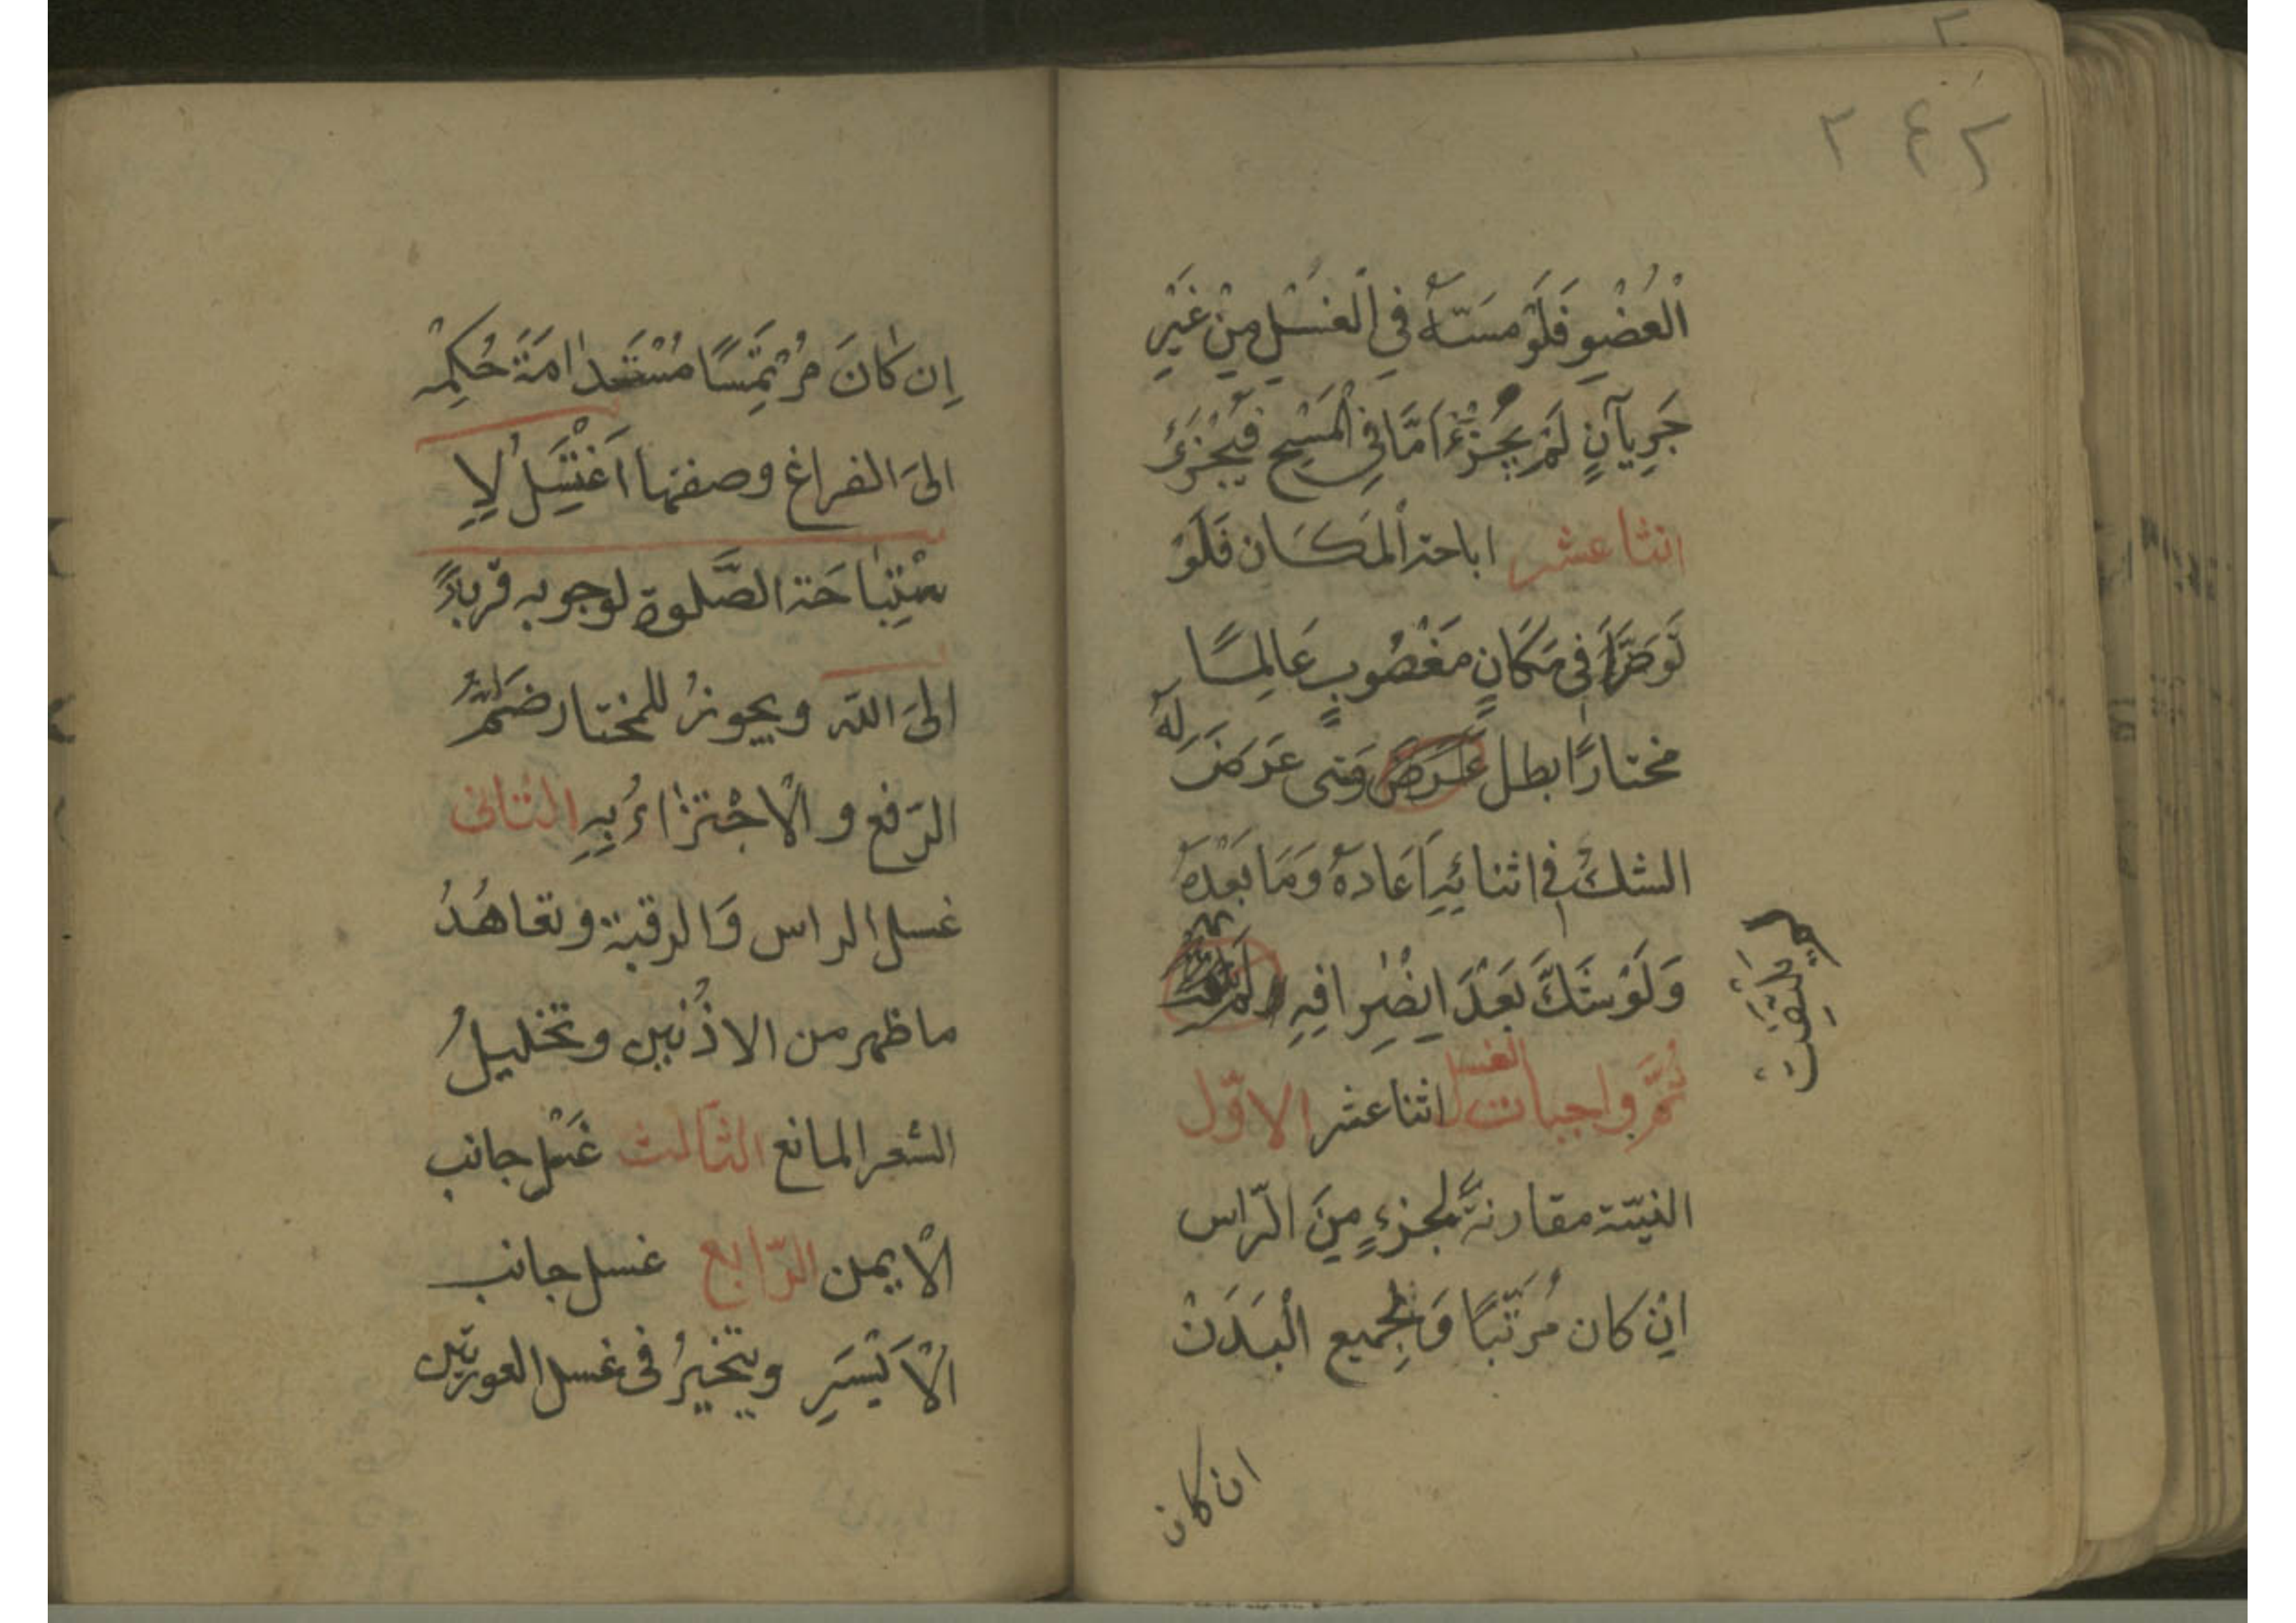 ٢٤٢
اْلعُضْوِ فَلَوْ مسَّهُ في اْلغَسْلِ مِنْ غَيْرِ
جَرِيآنٍ لَمْ يُجْزِءْ اَمَّا في اْلمَسْحِ فَيُجْزِئُ
اثنا عشر اباحة اْلمَكَان فَلَوْ
تَوَضَّأَ في مَكَانٍ مَغْصُوبٍ عَالِمًا
مختارًا بطل وَمتى عَرَضَ لَهُ
الشكُ في اثنائِهِ اَعَادَهُ وَمَا بَعْدَهُ
وَلَوْ شَكَّ بَعْدَ انصِرافِهِ لَمْ
يَلتَفِتْ
ثُمَّ واجبات الغسل اثنا عشر الاوّل
النيّة مقارنةً لجزءٍ مِنَ الرّاس
اِنْ كان مُرَتّبًا وَلجميع اْلبَدَنْ
ان كان
اِن كانَ مُرْتَمِسًا مُسْتَدامَةَ حُكمِهِ
الىَ الفراغ وصفتها اَغْتَسِلُ لِاِ
سْتِبَاحَة الصَّلوة لوجوبه قربةً
الىَ اللّه ويجوزُ للمختار ضَمُّ
الرّفع و الْاجْتزاءُ بِهِ الثانى
غسل الراس وَالرقبة وتعاهُدُ
ما ظهر من الاذُنين وتخليلُ
الشعر المانع الثالث غَسْل جانب
الْايمن الرّابع غسل جانب
اْلاَيْسَرِ ويتخيرُ فى غسل العورتين